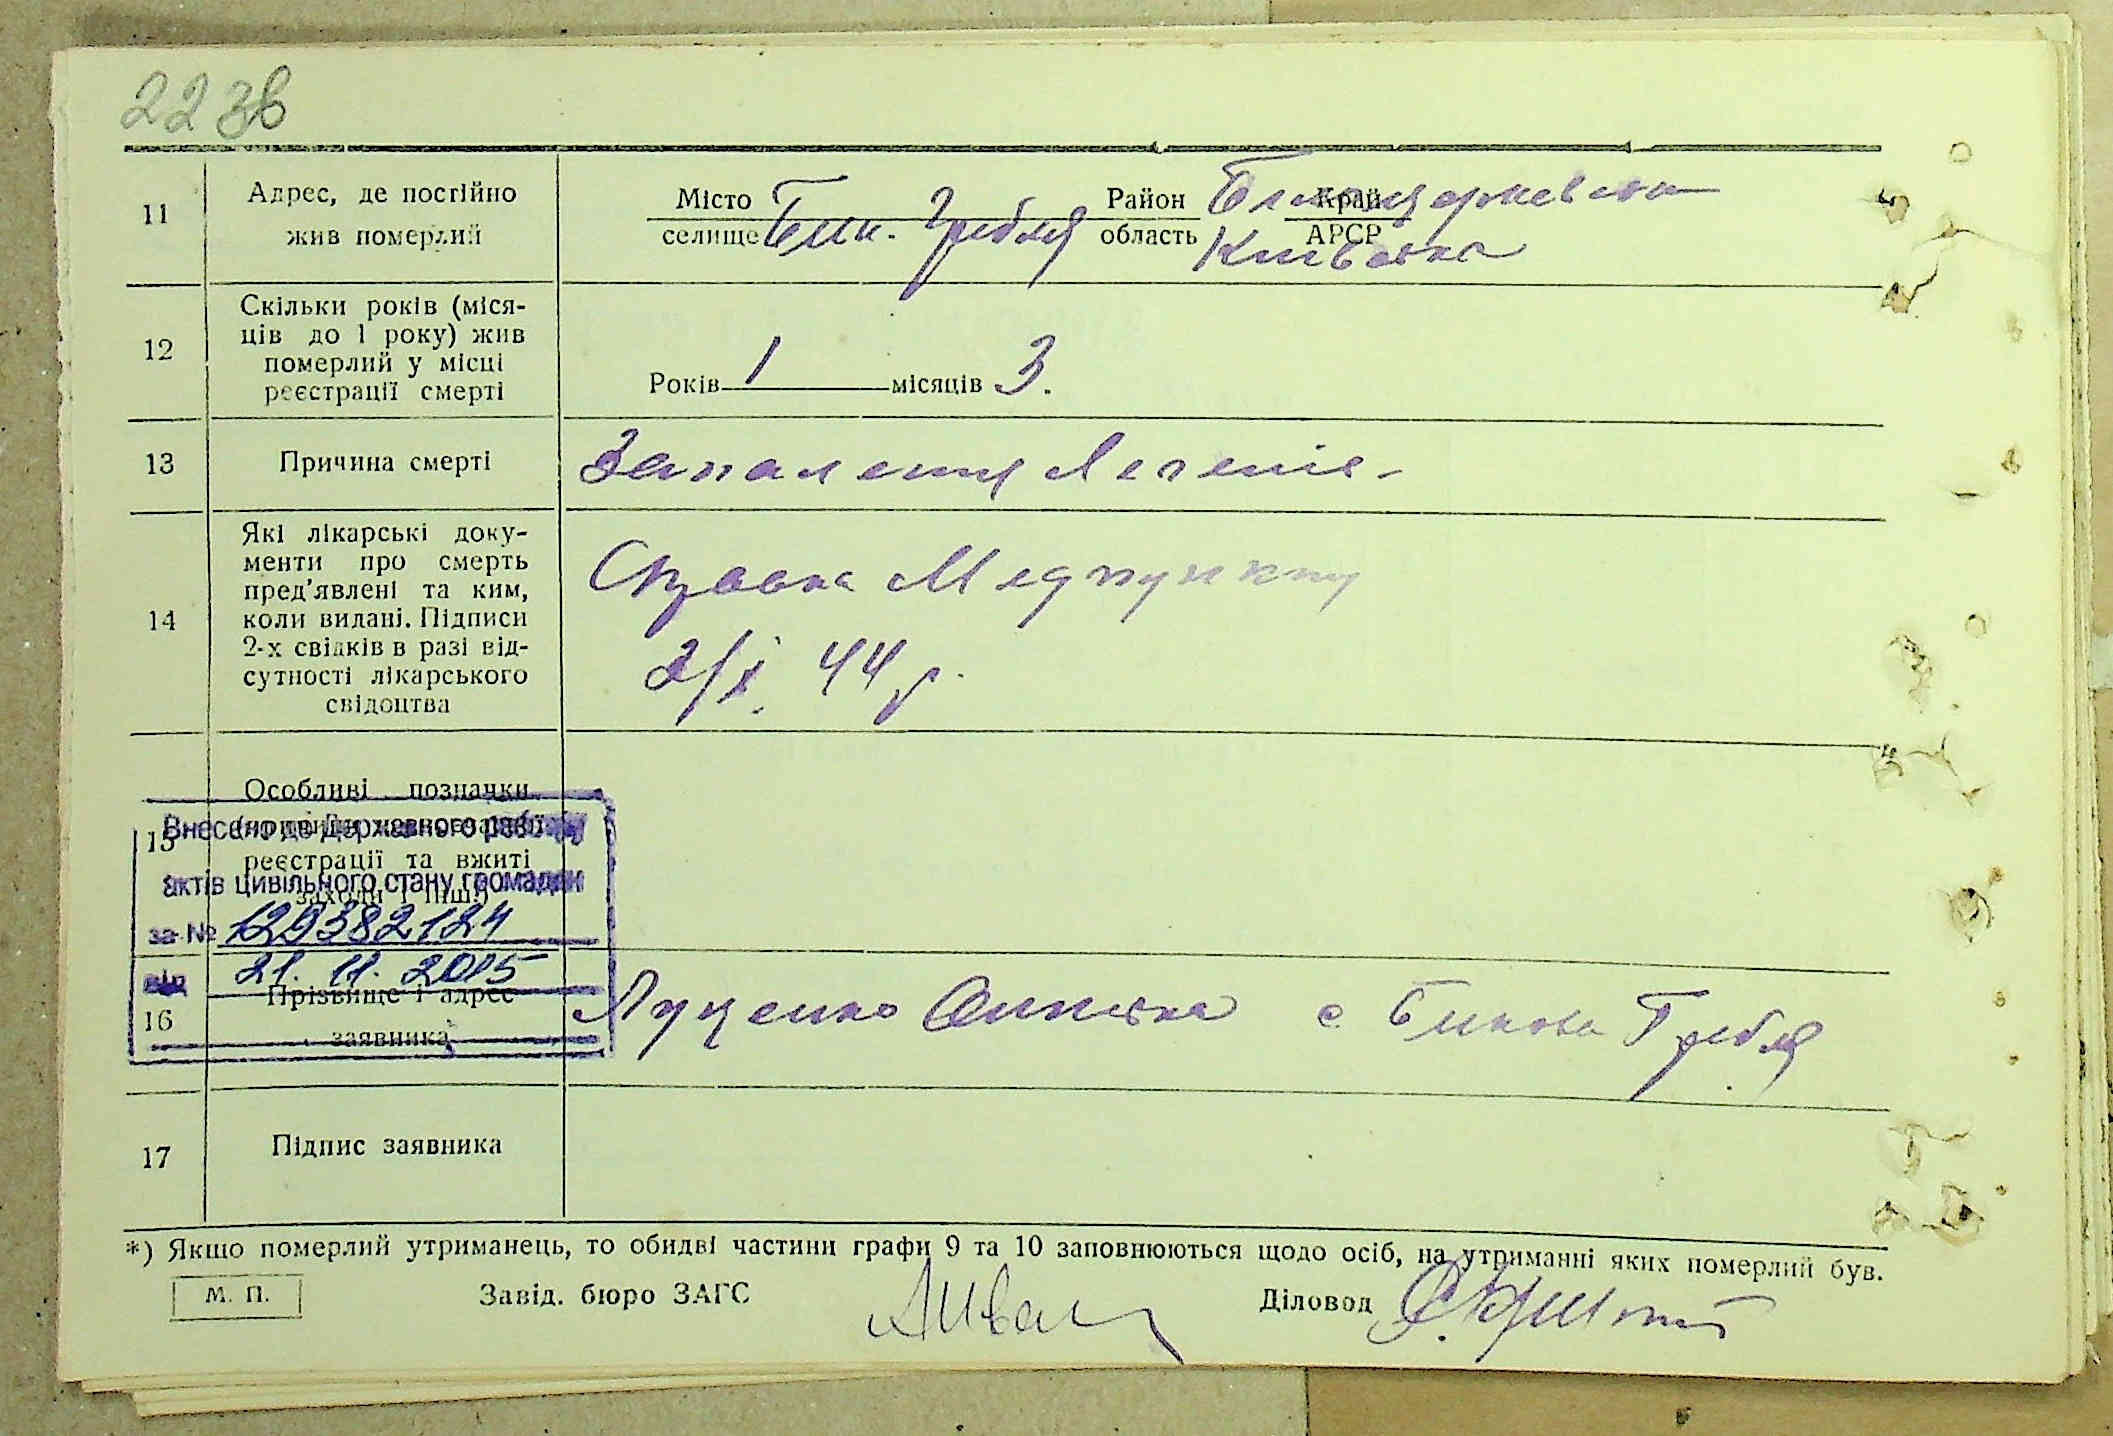 22 зв
11
Адрес, де постійно
жив померлий
Місто
селище
Бик. Гребля
Район
область
Білоцерківська
Київська
Край
АРСР
12
Скільки років (міся-
ців до 1 року) жив
померлий у місці
реєстрації смерті
Років 1 місяців 3.
13
Причина смерті
Запалення Легенів
14
Які лікарські доку-
менти про смерть
пред'явлені та ким,
коли видані. Підписи
2-х свідків в разі від-
сутності лікарського
свідоцтва
Справка Медпункту
2/X 44 р.
15
Особливі позначки
реєстрації та вжиті
заходи і інш.)
Внесено до Державного реєстру
актів цивільного стану громадян
за № 129382124
від 21.11.2015
16
Прізвище і адрес
заявника
Луценко с Бикова Гребля
17
Підпис заявника
*) Якщо померлий утриманець, то обидві частини графи 9 та 10 заповнюються щодо осіб, на утриманні яких померлий був.
М. П.
Завід. бюро ЗАГС
Діловод